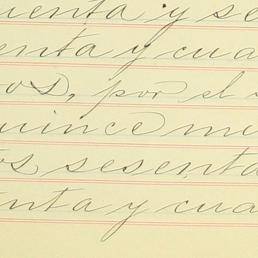 uenta y se
enta y cua
os, por el
quince mi
os sesenta
enta y cua